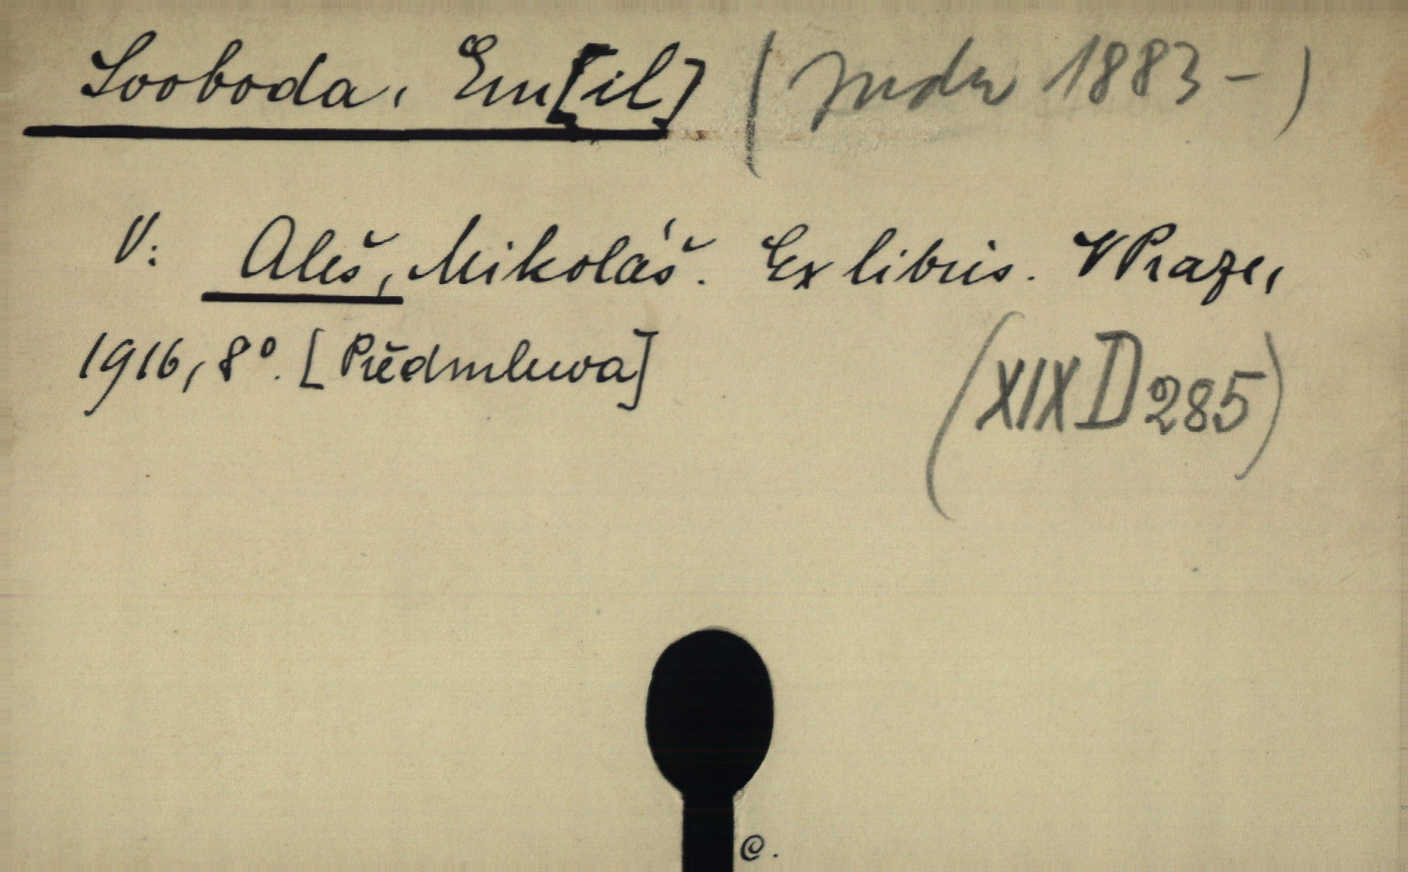 Svoboda, Em[il] (1883 - )
V: Aleš, Mikoláš. Ex libris. V Praze,
1916, 8°. [Předmluva]
(XIX D 285)
C.